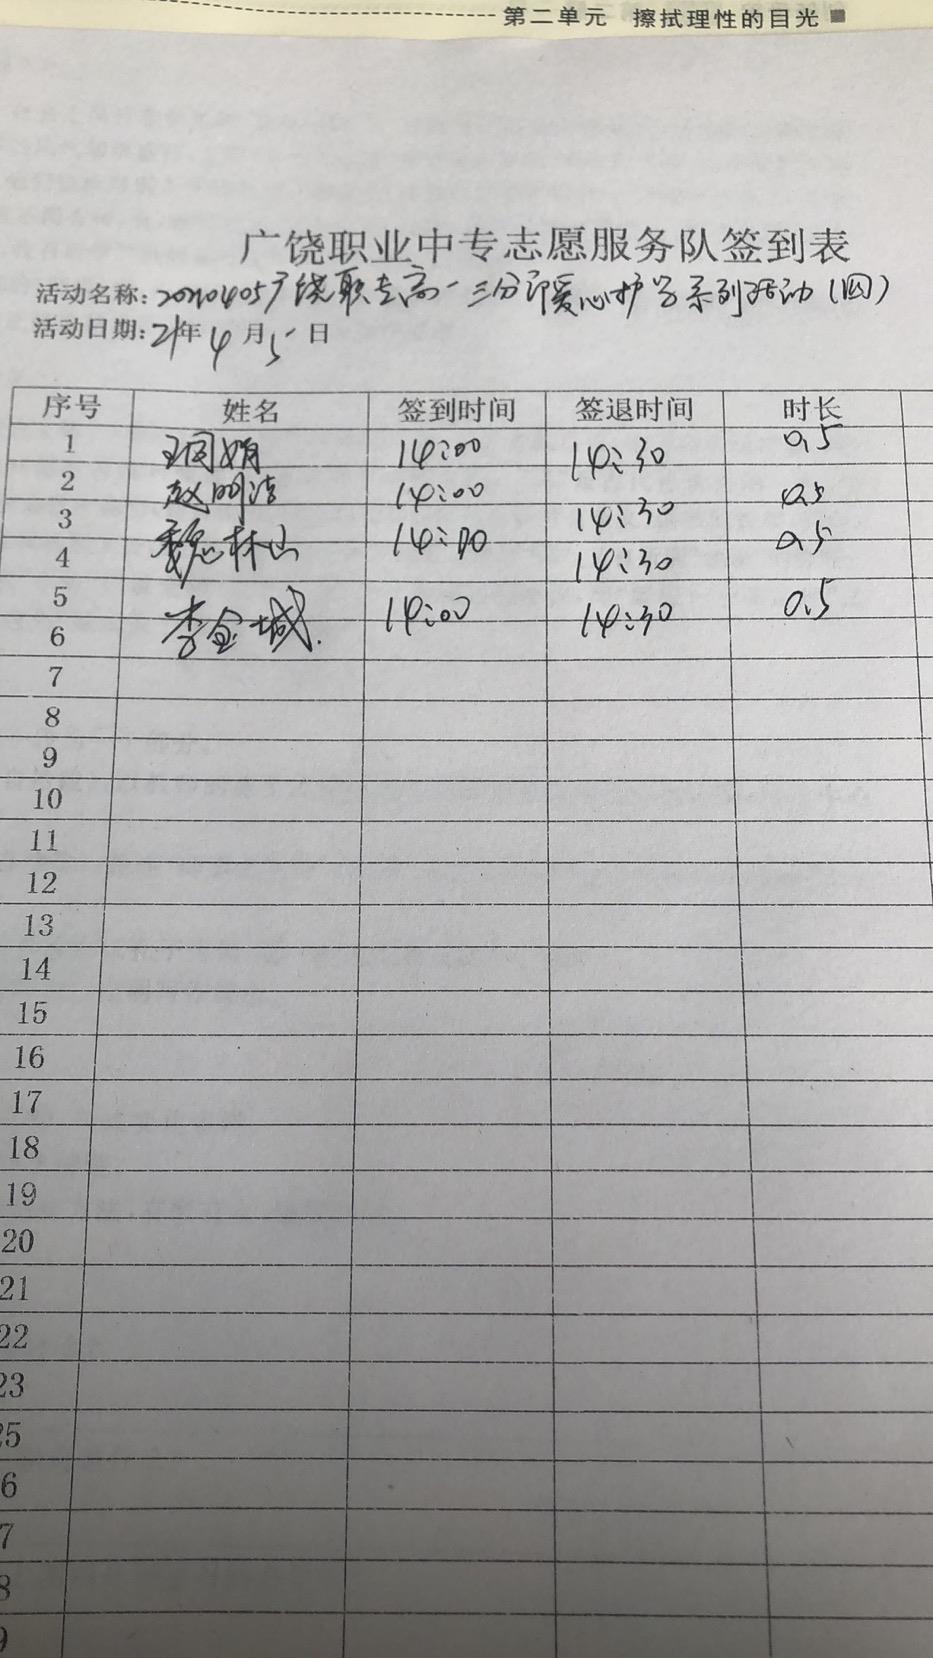 第二单元 擦拭理性的目光 ■
广饶职业中专志愿服务队签到表
活动名称: 20210405广饶职专高一三分部爱心护学系列活动（四）
活动日期: 21年4月5日
序号 姓名 签到时间 签退时间 时长
1 王闰娟 14:00 14:30 0.5
2 赵明浩 14:00 14:30 0.5
3 魏林山 14:00 14:30 0.5
4
5 李金城. 14:00 14:30 0.5
6
7
8
9
10
11
12
13
14
15
16
17
18
19
20
21
22
23
25
6
7
8
9